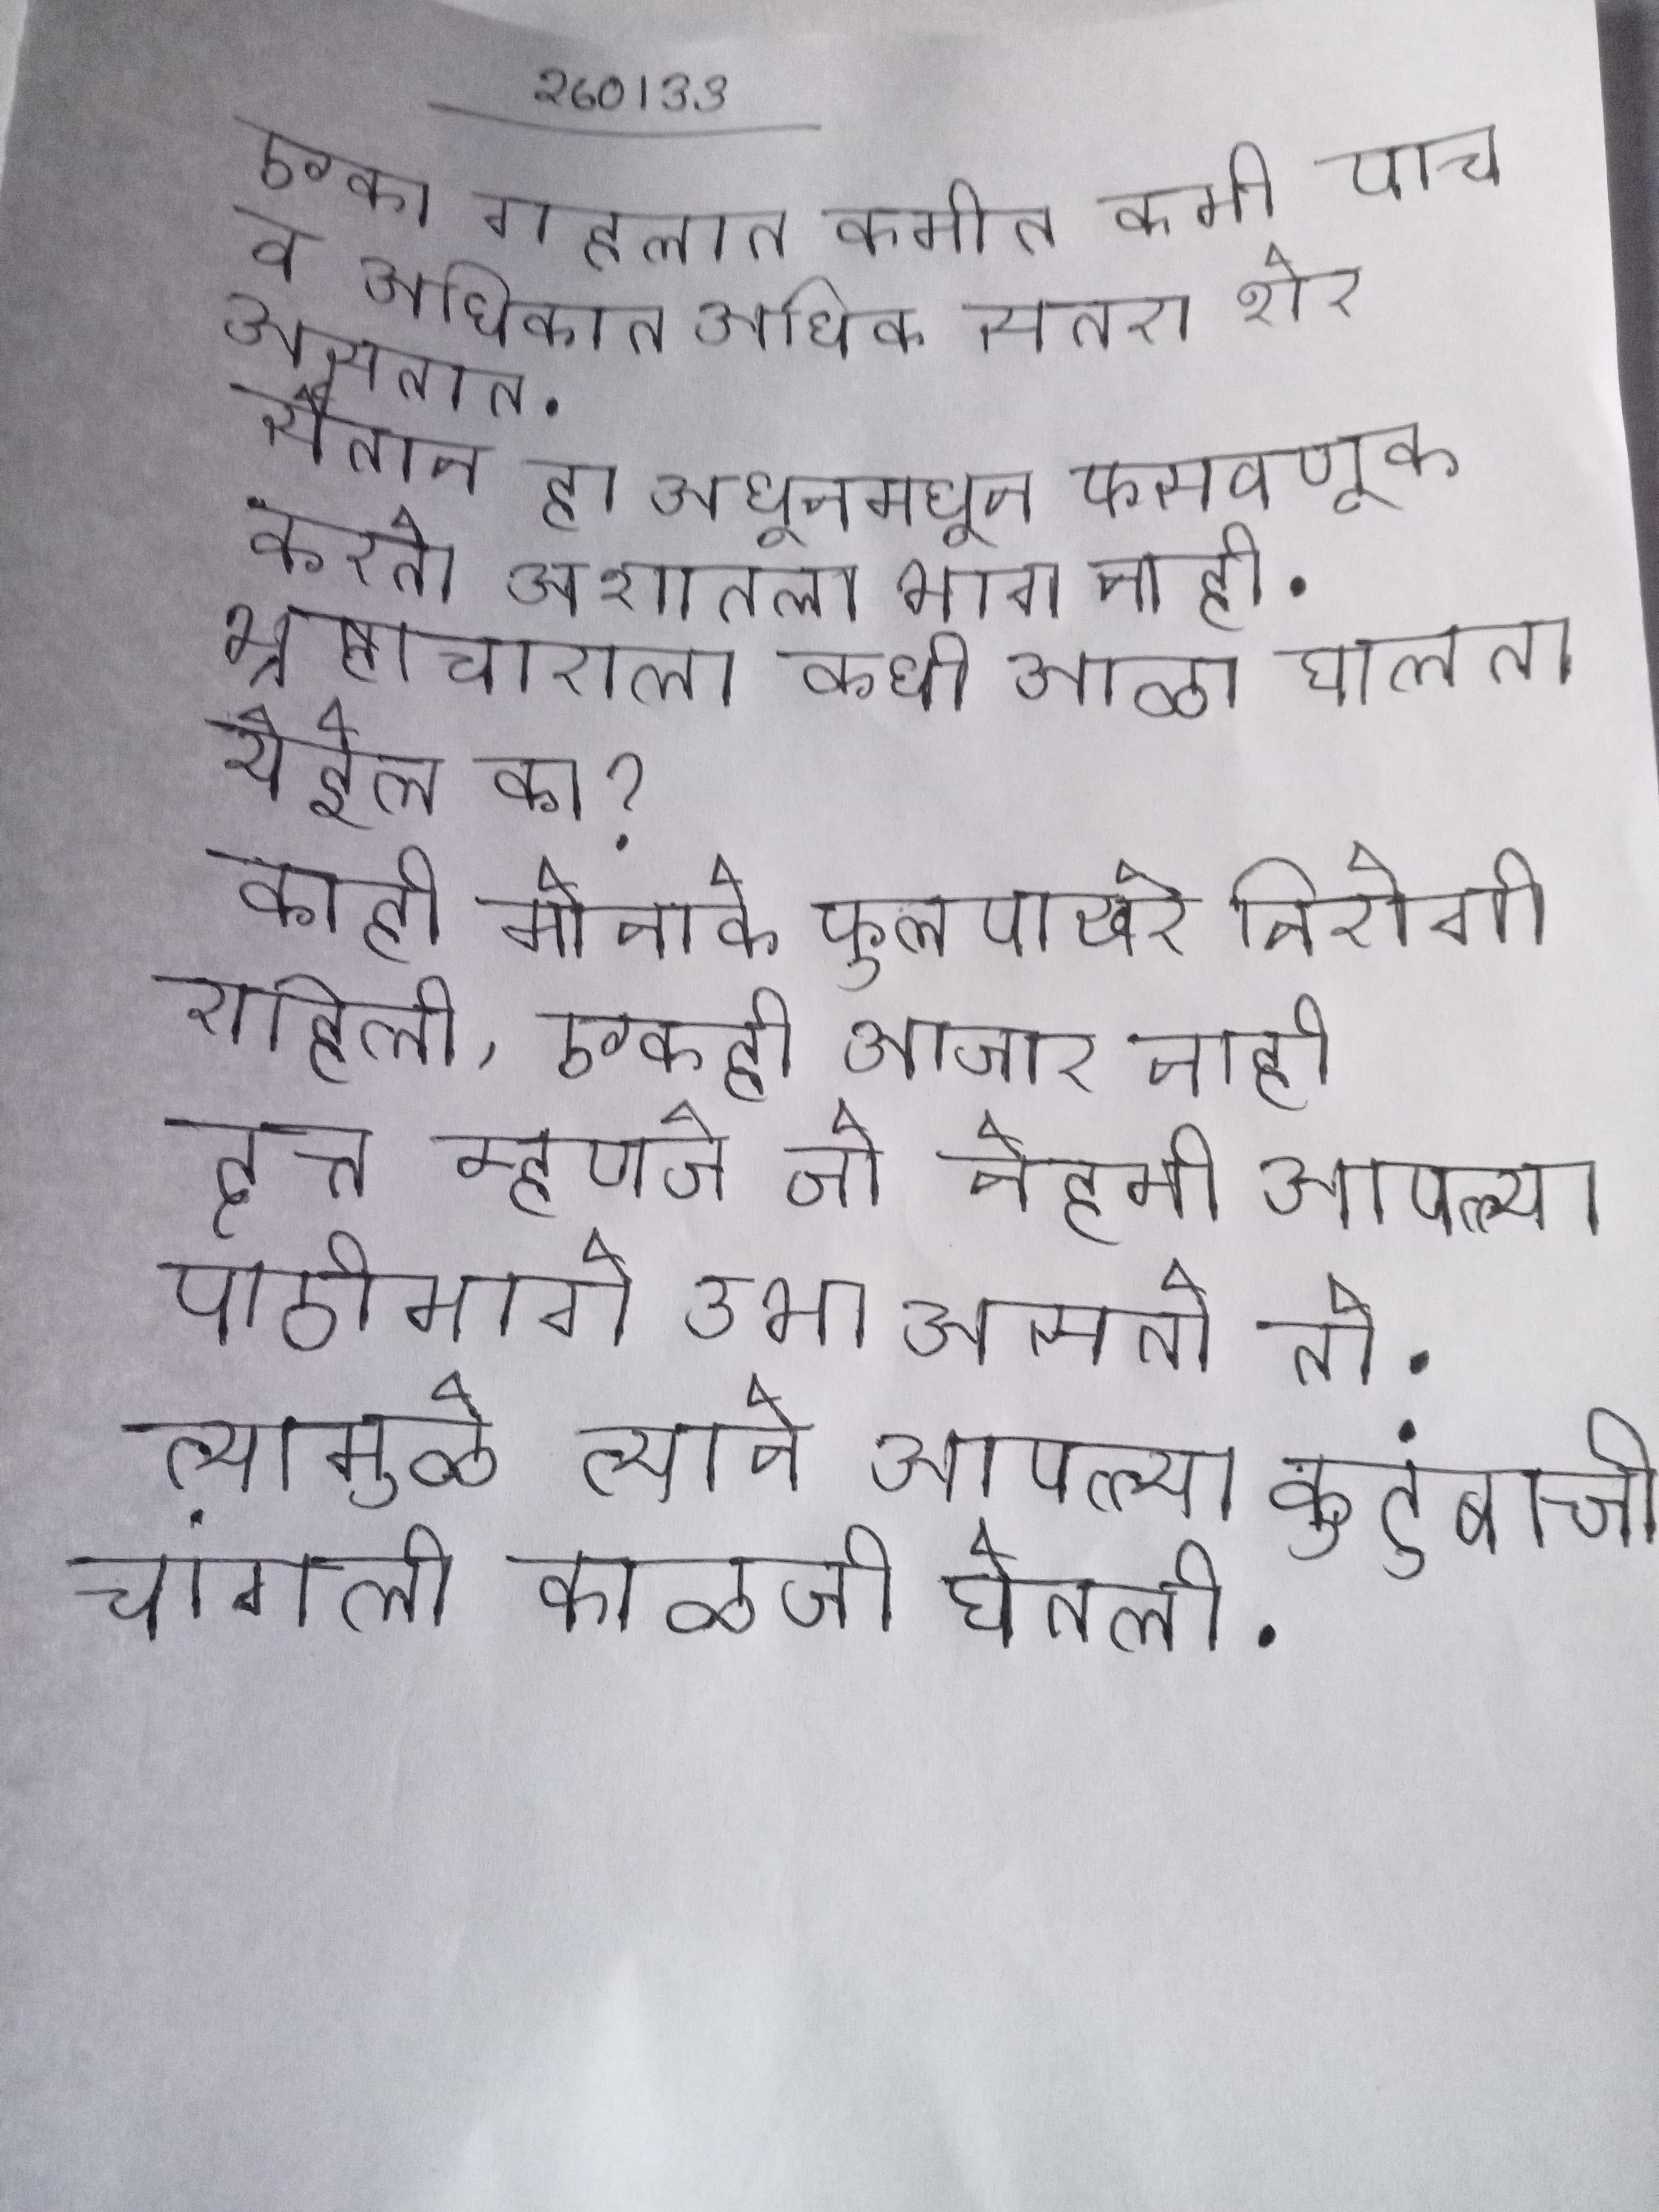 260133
एका गहलात कमीत कमी पाच
व अधिकात अधिक सतरा शेर
असतात.
सैतान हा अधूनमधून फसवणूक
करतो अशातला भाग नाही.
भ्रष्टाचाराला कधी आळा घालता
येईल का?
काही मोनार्क फुलपाखरे निरोगी
राहिली, एकही आजार नाही
दत्त म्हणजे जो नेहमी आपल्या
पाठीमागे उभा असतो तो.
त्यामुळे त्याने आपल्या कुटुंबाची
चांगली काळजी घेतली.